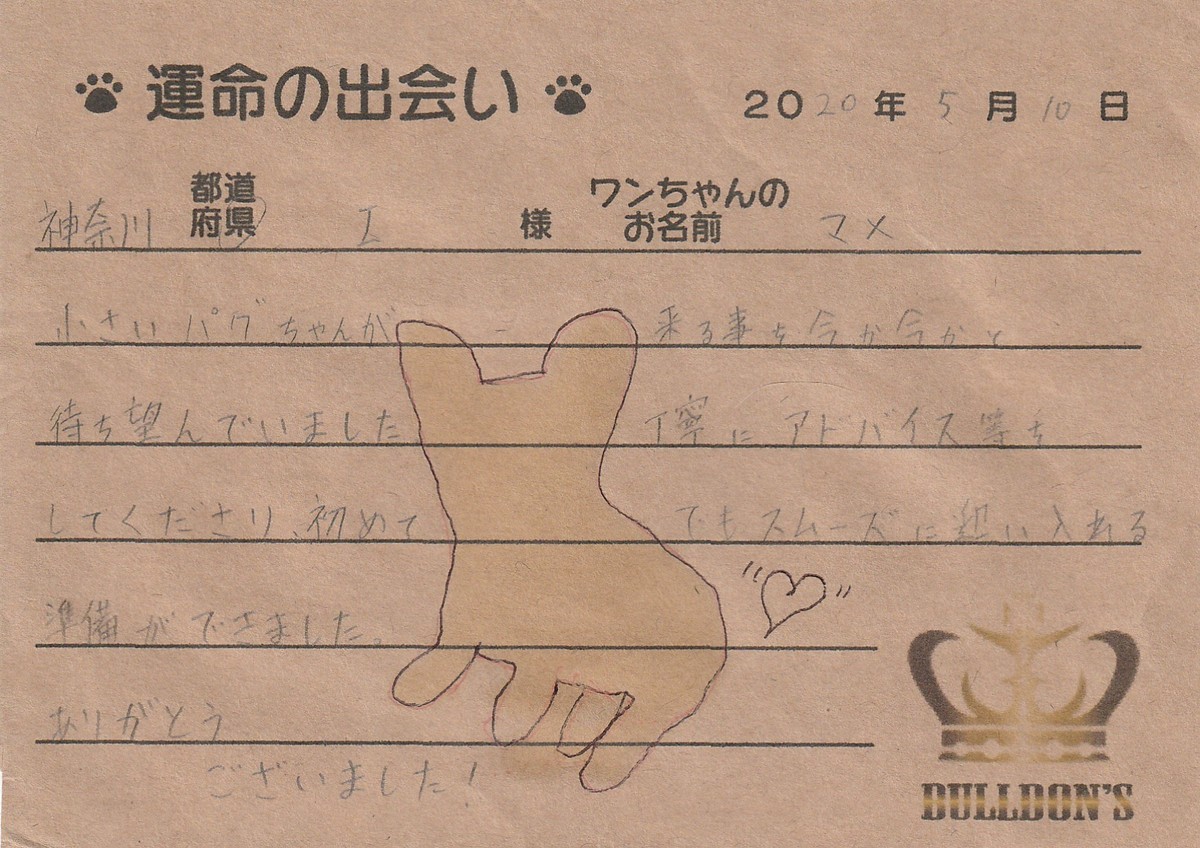 運命の出会い 2020年5月10日
神奈川 都道府県 I 様 ワンちゃんのお名前 マメ
小さいパグちゃんが 来る事を今か今かと
待ち望んでいました 丁寧にアドバイス等も
してくださり、初めて でもスムーズに迎い入れる
準備ができました。
ありがとう
ございました!
DULLDON'S